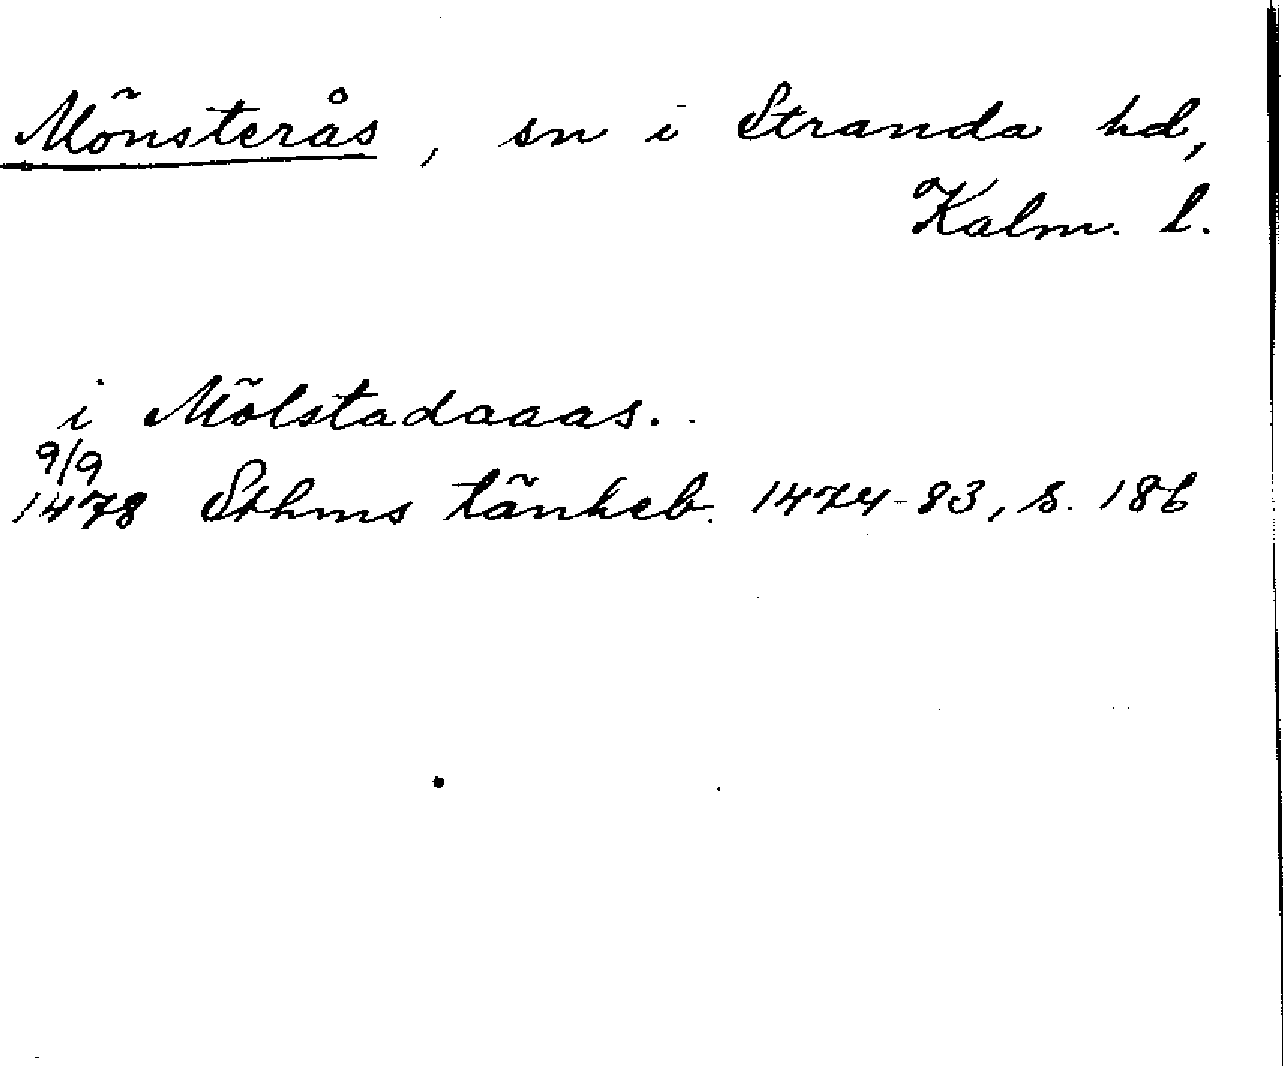 Mönsterås, sn i Stranda hd,
Kalm. l.
i Mölstadaaas.
9/9
1478 Sthms tänkeb. 1474-83, s. 186